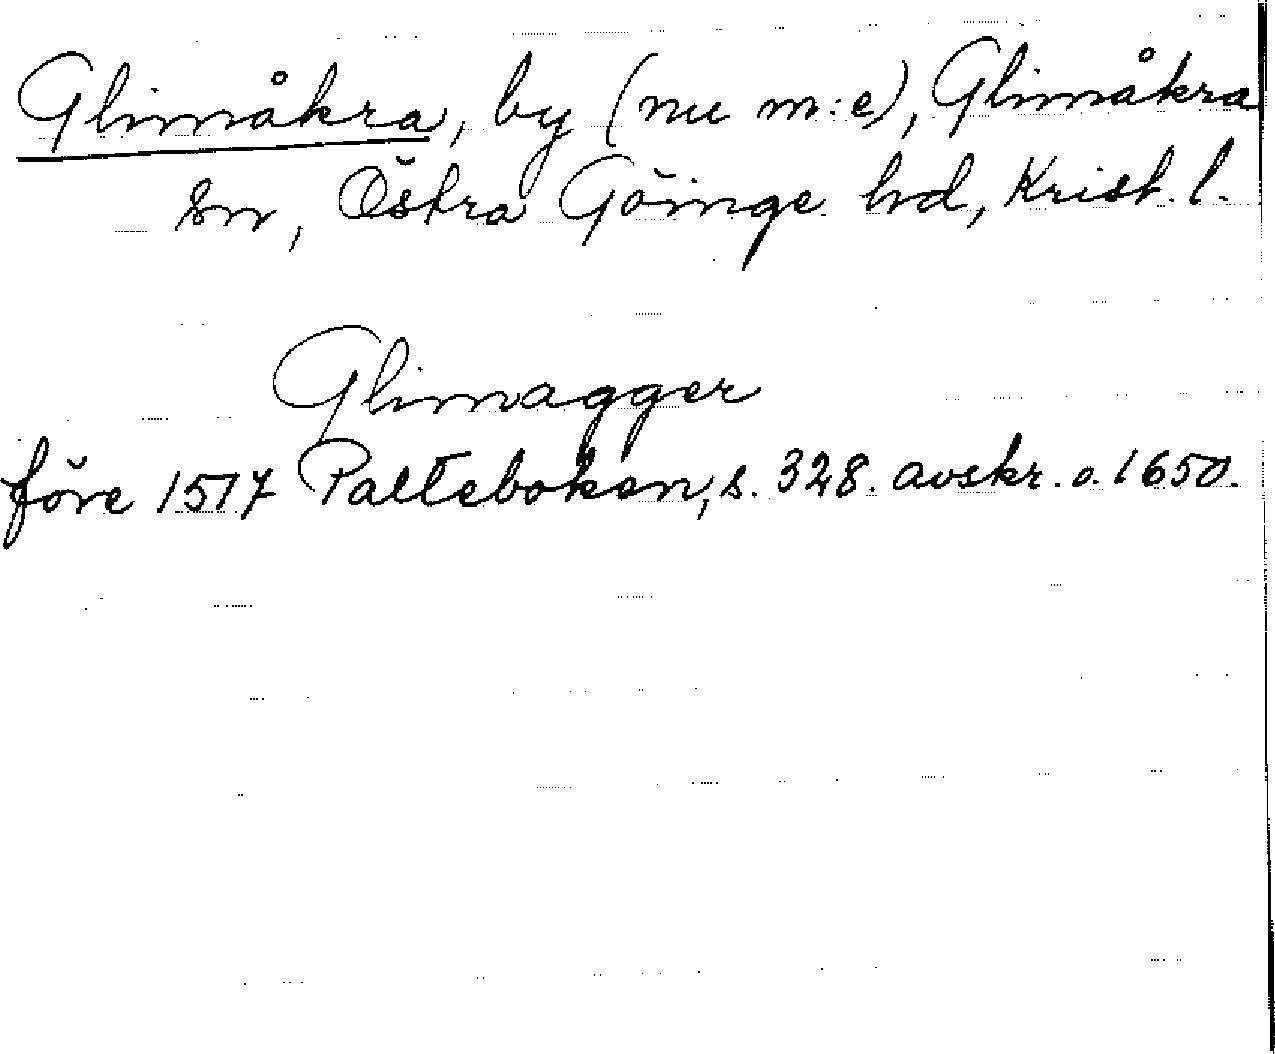 Glimåkra, by (nu m:e), Glimåkra
sn, Östra Göinge hd, Krist. l.
Glimagger
före 1517 Palteboken, s. 328. avskr. o. 1650.